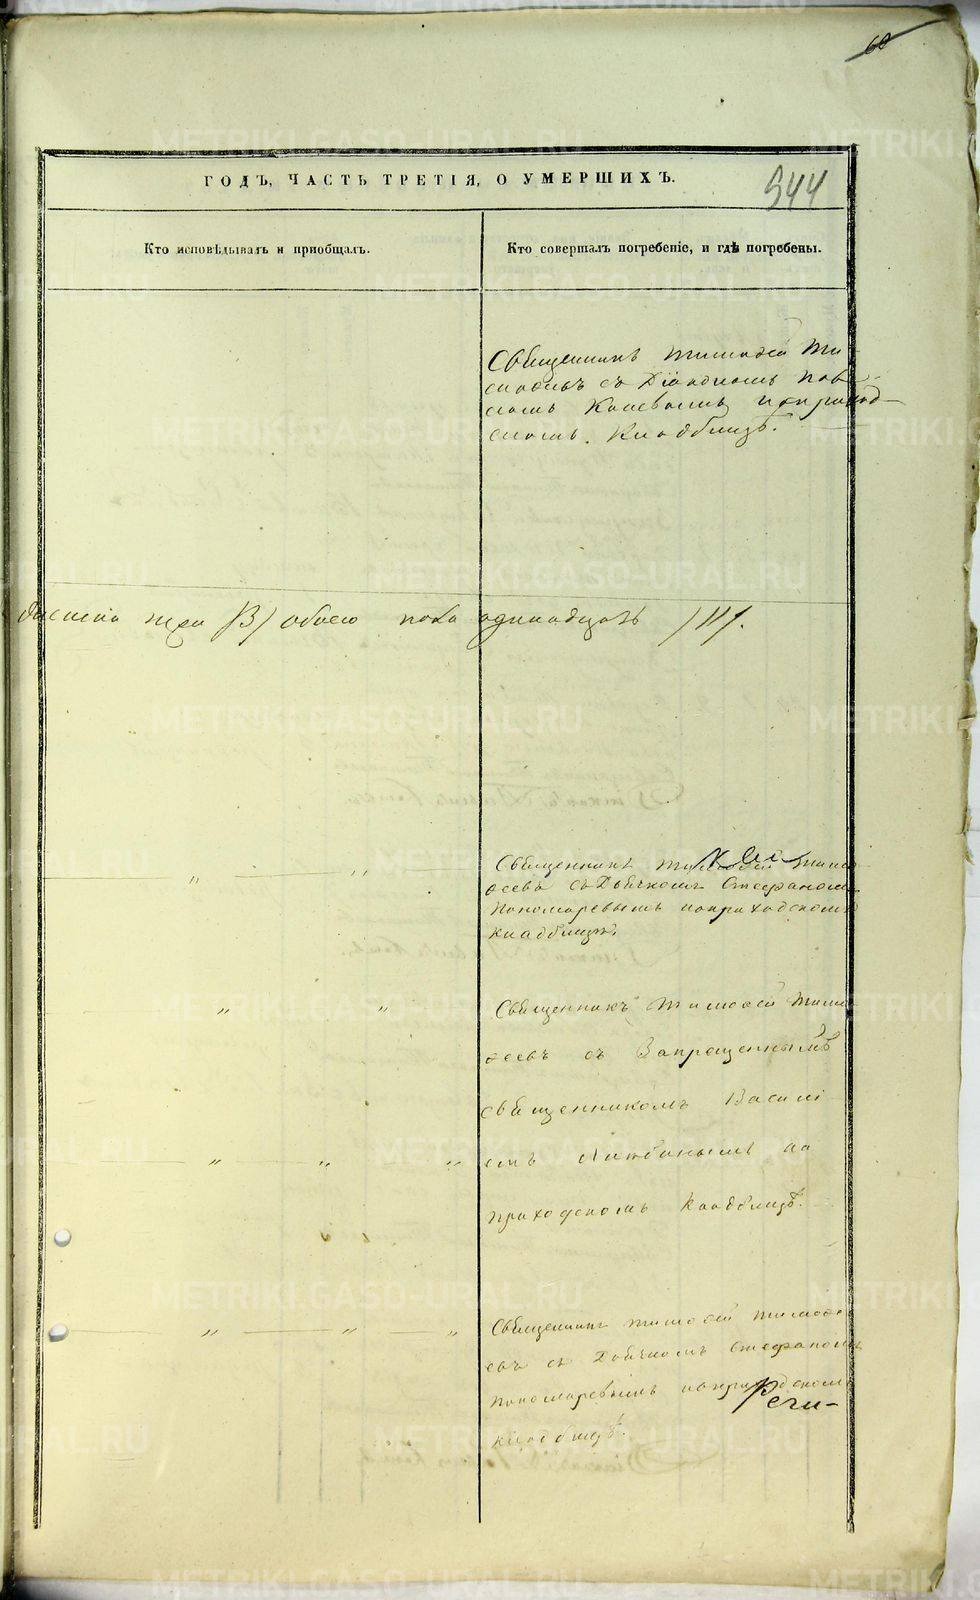 60
944
ГОДЪ, ЧАСТЬ ТРЕТІЯ, О УМЕРШИХЪ.
Кто исповѣдывалъ и приобщалъ.
Кто совершалъ погребеніе, и гдѣ погребены.
Священникъ Тимоѳей Ти-
моѳеевъ съ Діакономъ Пав-
ломъ на приход-
скомъ кладбищѣ.
три /3/ обоего пола одинадцать /11/.
Священникъ Тимоѳей Тимо-
ѳеевъ съ Дьячкомъ Стефаномъ
Пономаревымъ на приходскомъ
кладбищѣ.
Священникъ Тимоѳей Тимо-
ѳеевъ съ Запрещеннымъ
священникомъ Василі
емъ на
приходскомъ кладбищѣ.
Священникъ Тимоѳей Тимоѳе-
евъ съ Дьячкомъ Стефаномъ
Пономаревымъ на приходскомъ
кладбищѣ.
METRIKI.GASO-URAL.RU